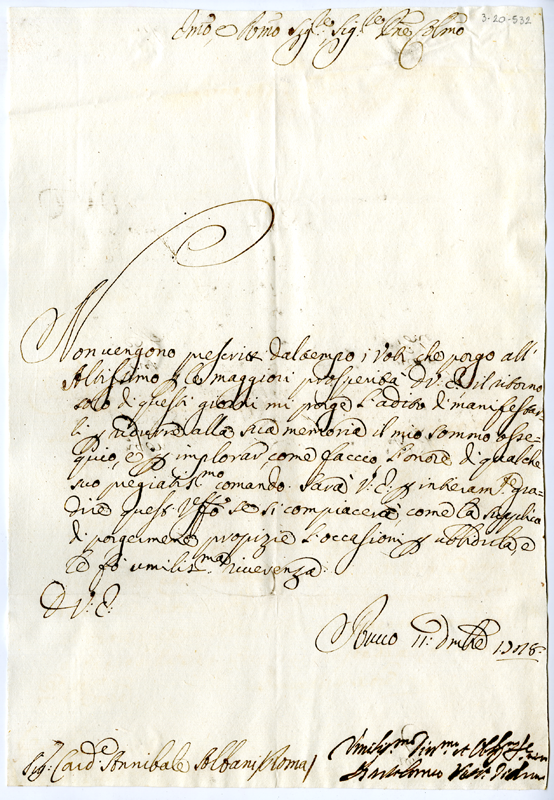 3-20-532
Emo, e Rmo Sig.re Sig.re Pne Colmo
Non vengono prescritti dal tempo i Voti che porgo all'
Altissimo p le maggiori prosperità di V. E. il ritorno
solo di questi giorni mi porge l'adito di manifestar
li p ridurre alla sua memoria il mio sommo osse-
quio, e p implorar, come faccio l'onore di qualche
suo pregiatis.mo comando. Sarà V. E. p interam.te gra-
dire quest' Uff.o se si compiacerà, come la supplico
di porgermene propizie l'occasioni p ubbidirla, e
le fò umilis.ma riverenza
D V. E.
11: Xmbre 1718
Sig.r Card.e Annibale Albani Roma
Umilis.mo Div.mo et Obl.mo
Bartolomeo